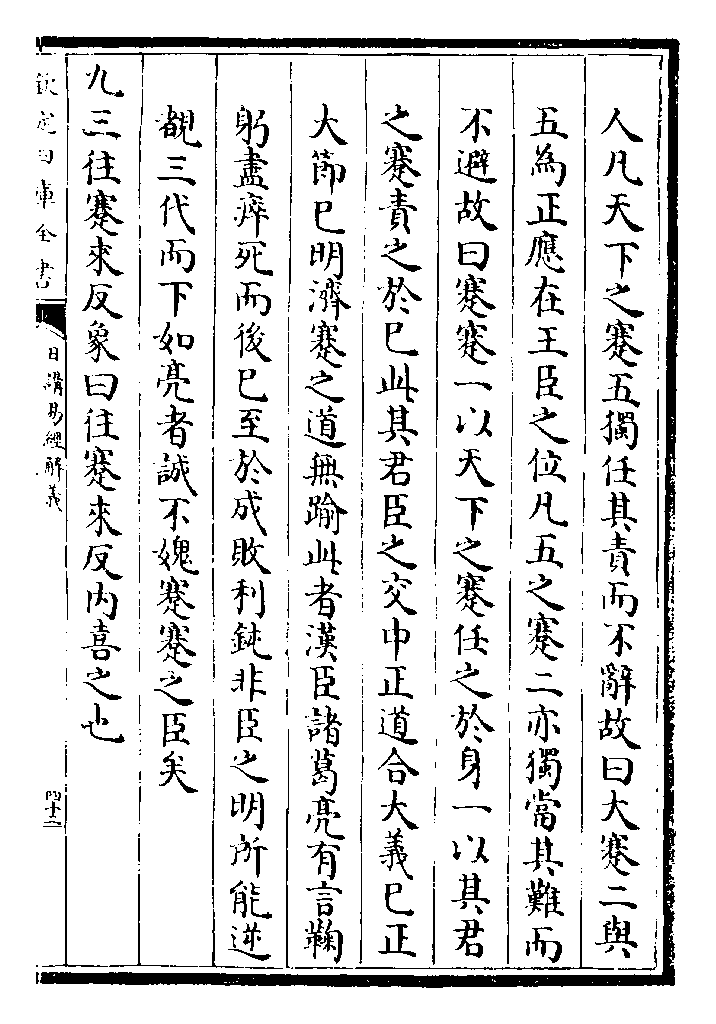 人凡天下之蹇五獨任其責而不辭故曰大蹇二與
五為正應在王臣之位凡五之蹇二亦獨當其難而
不避故曰蹇蹇一以天下之蹇任之於身一以其君
之蹇責之於已此其君臣之交中正道合大義已正
大節已明濟蹇之道無踰此者漢臣諸葛亮有言鞠
躬盡瘁死而後已至於成敗利鈍非臣之明所能逆
覩三代而下如亮者誠不媿蹇蹇之臣矣
九三往蹇來反象曰往蹇來反内喜之也
欽定四庫全書
日講易經解義
四十二